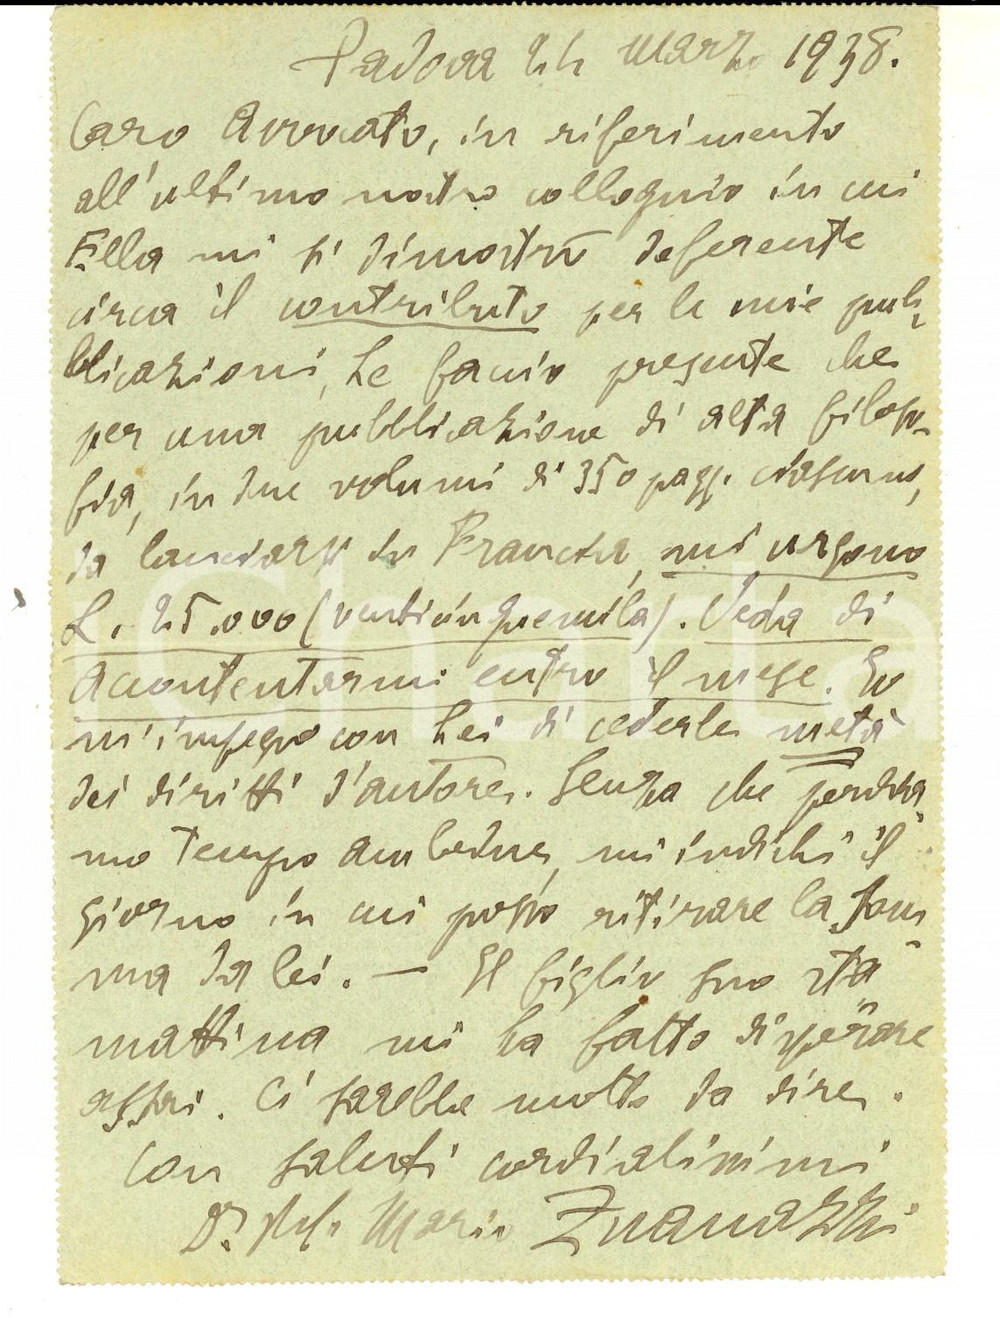 Padova 24 Marzo 1938.
Caro Avvocato, in riferimento
all'ultimo nostro colloquio in cui
Ella mi si dimostrò deferente
circa il contributo per le mie pub-
blicazioni, Le faccio presente che
per una pubblicazione di alta filoso-
fia, in due volumi di 350 pagg. ciascuno,
da lanciarsi in Francia, mi urgono
L. 25.000 (venticinquemila). Veda di
accontentarmi entro il mese. Io
m'impegno con Lei di cederle metà
dei diritti d'autore. Senza che perdia-
mo tempo ambedue, mi indichi il
giorno in cui posso ritirare la som-
ma da lei. — Il figlio suo sta-
mattina mi ha fatto disperare
assai. Ci sarebbe molto da dire.
Con saluti cordialissimi
D. Prof. Mario
Charta